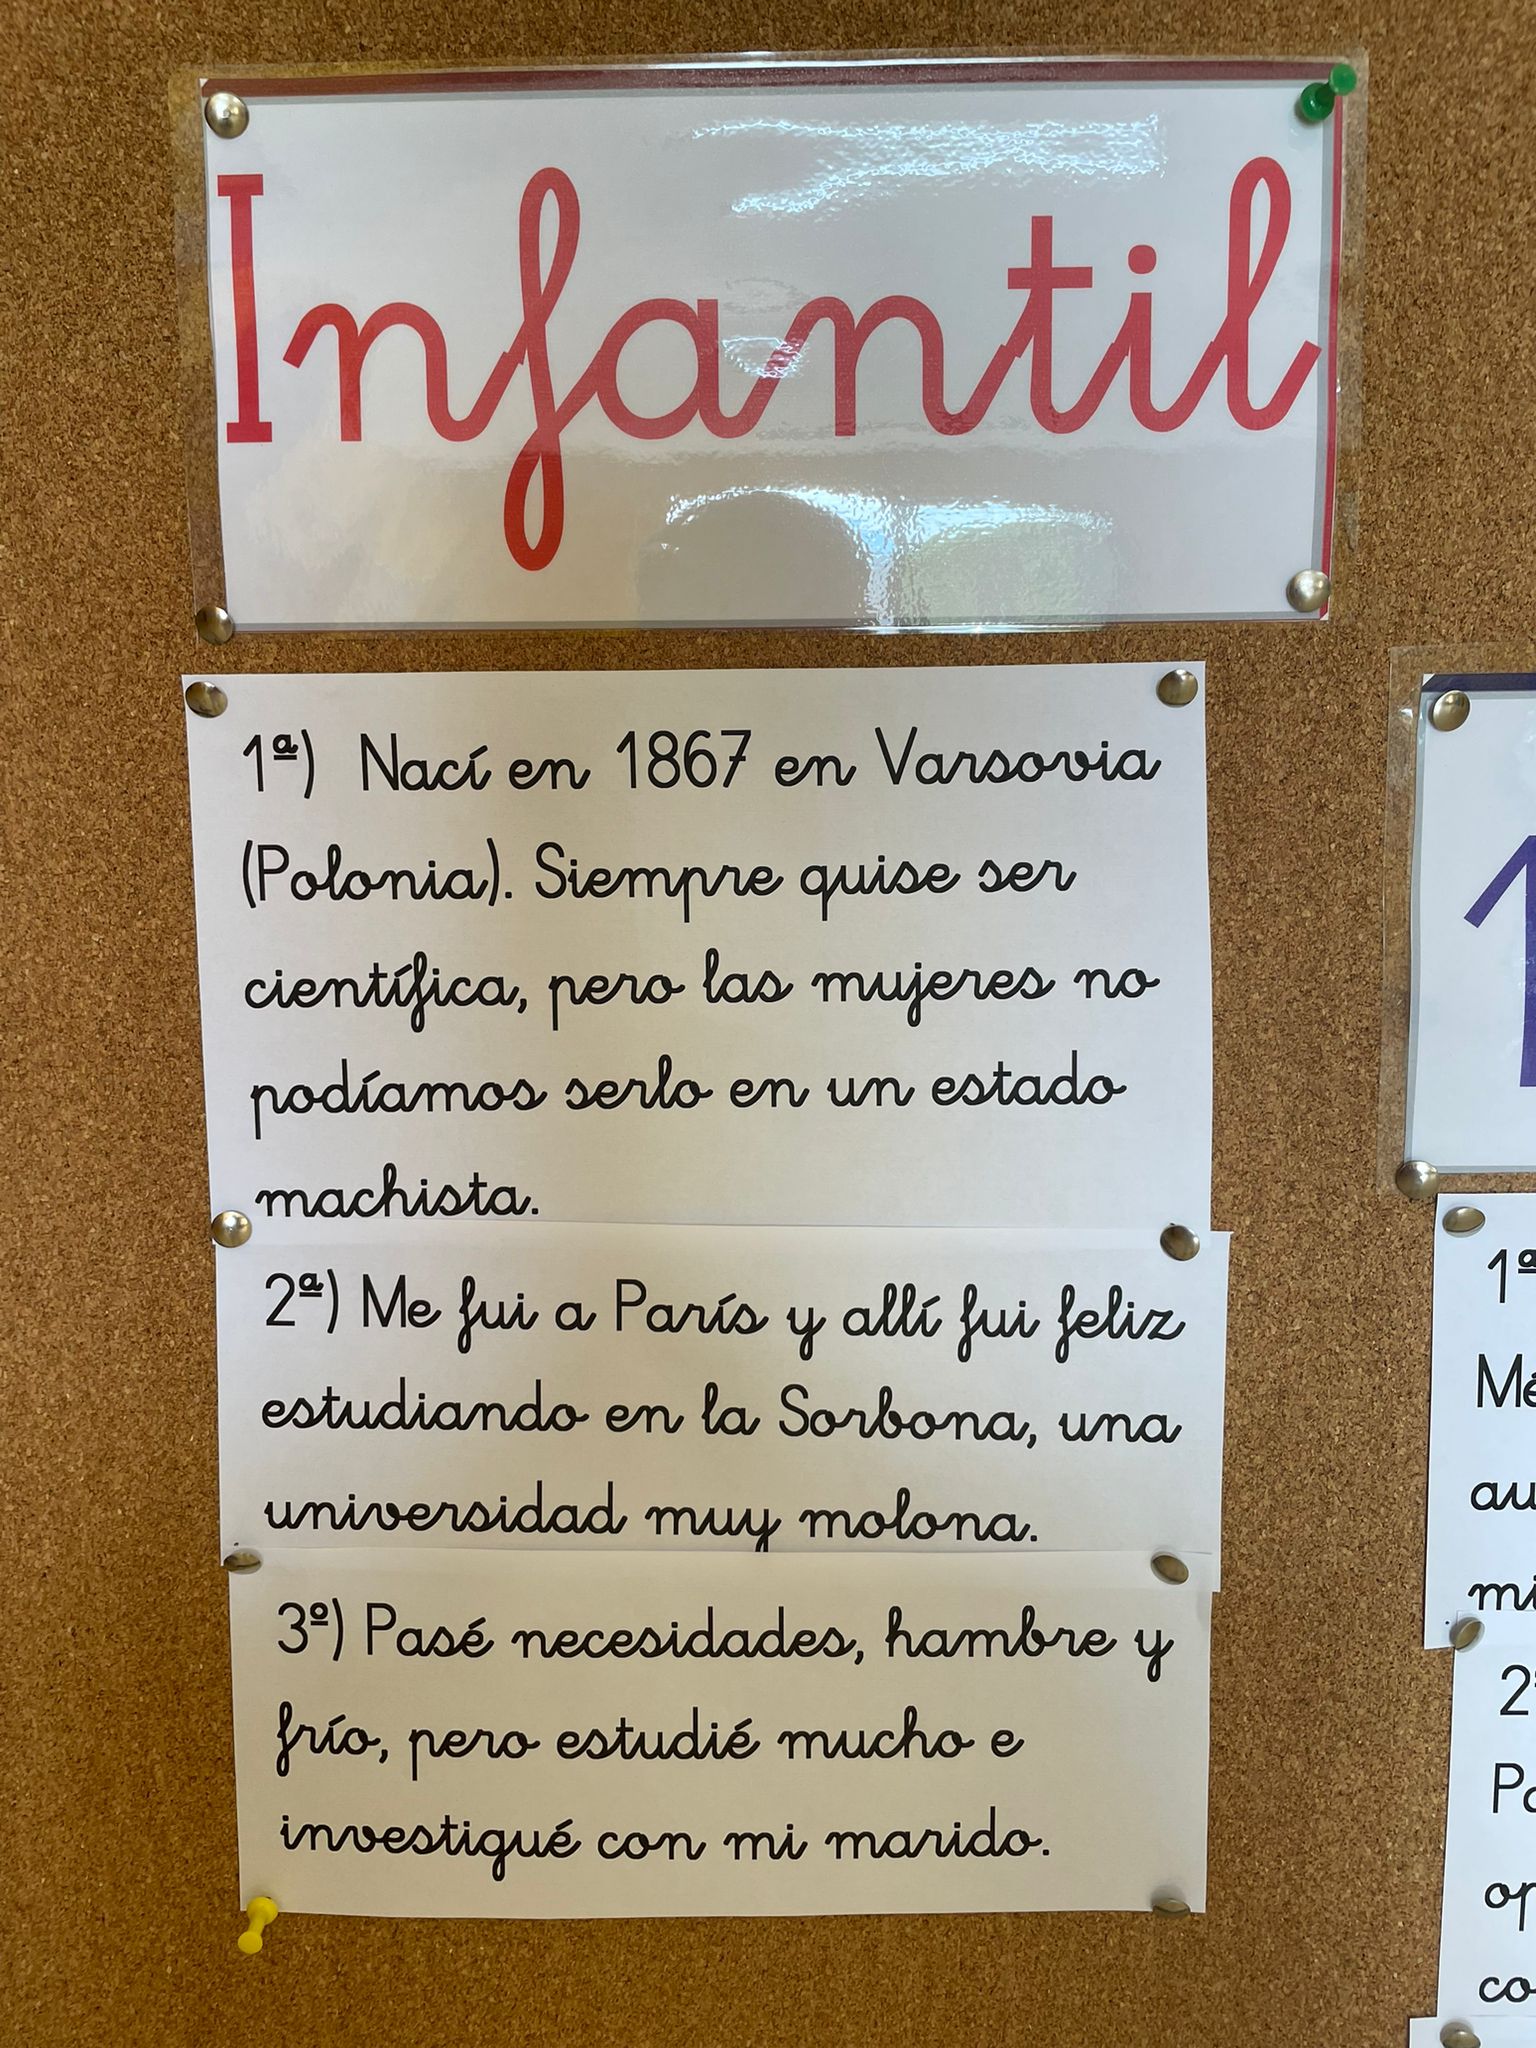 Infantil
1ª) Nací en 1867 en Varsovia
(Polonia). Siempre quise ser
científica, pero las mujeres no
podíamos serlo en un estado
machista.
2ª) Me fui a París y allí fui feliz
estudiando en la Sorbona, una
universidad muy molona.
3º) Pasé necesidades, hambre y
frío, pero estudié mucho e
investigué con mi marido.
1
1ª